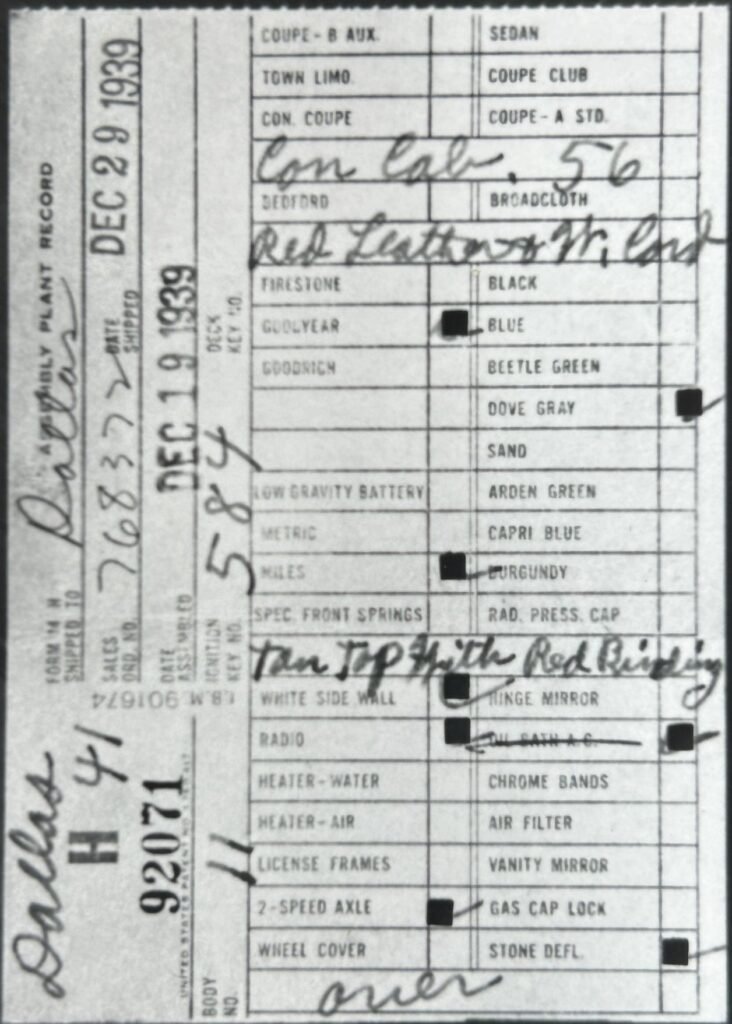 COUPE - B AUX. SEDAN
TOWN LIMO. COUPE CLUB
CON. COUPE COUPE - A STD.
Con Cab. 56
BEDFORD BROADCLOTH
Red Leather & W. Cord
FIRESTONE BLACK
GOODYEAR BLUE
GOODRICH BEETLE GREEN
DOVE GRAY
SAND
LOW GRAVITY BATTERY ARDEN GREEN
METRIC CAPRI BLUE
MILES BURGUNDY
SPEC. FRONT SPRINGS RAD. PRESS. CAP
Tan Top With Red Binding
WHITE SIDE WALL HINGE MIRROR
RADIO OIL BATH A.C.
HEATER - WATER CHROME BANDS
HEATER - AIR AIR FILTER
LICENSE FRAMES VANITY MIRROR
2-SPEED AXLE GAS CAP LOCK
WHEEL COVER STONE DEFL.
over
ASSEMBLY PLANT RECORD
FORM 14 H
SHIPPED TO Dallas
SALES ORD. NO. 768372 DATE SHIPPED DEC 29 1939
DATE ASSEMBLED DEC 19 1939
IGNITION KEY NO. 584 DECK KEY NO.
I.B.M. 901674
Dallas
H 41
92071
UNITED STATES PATENT NO.
BODY NO. 11